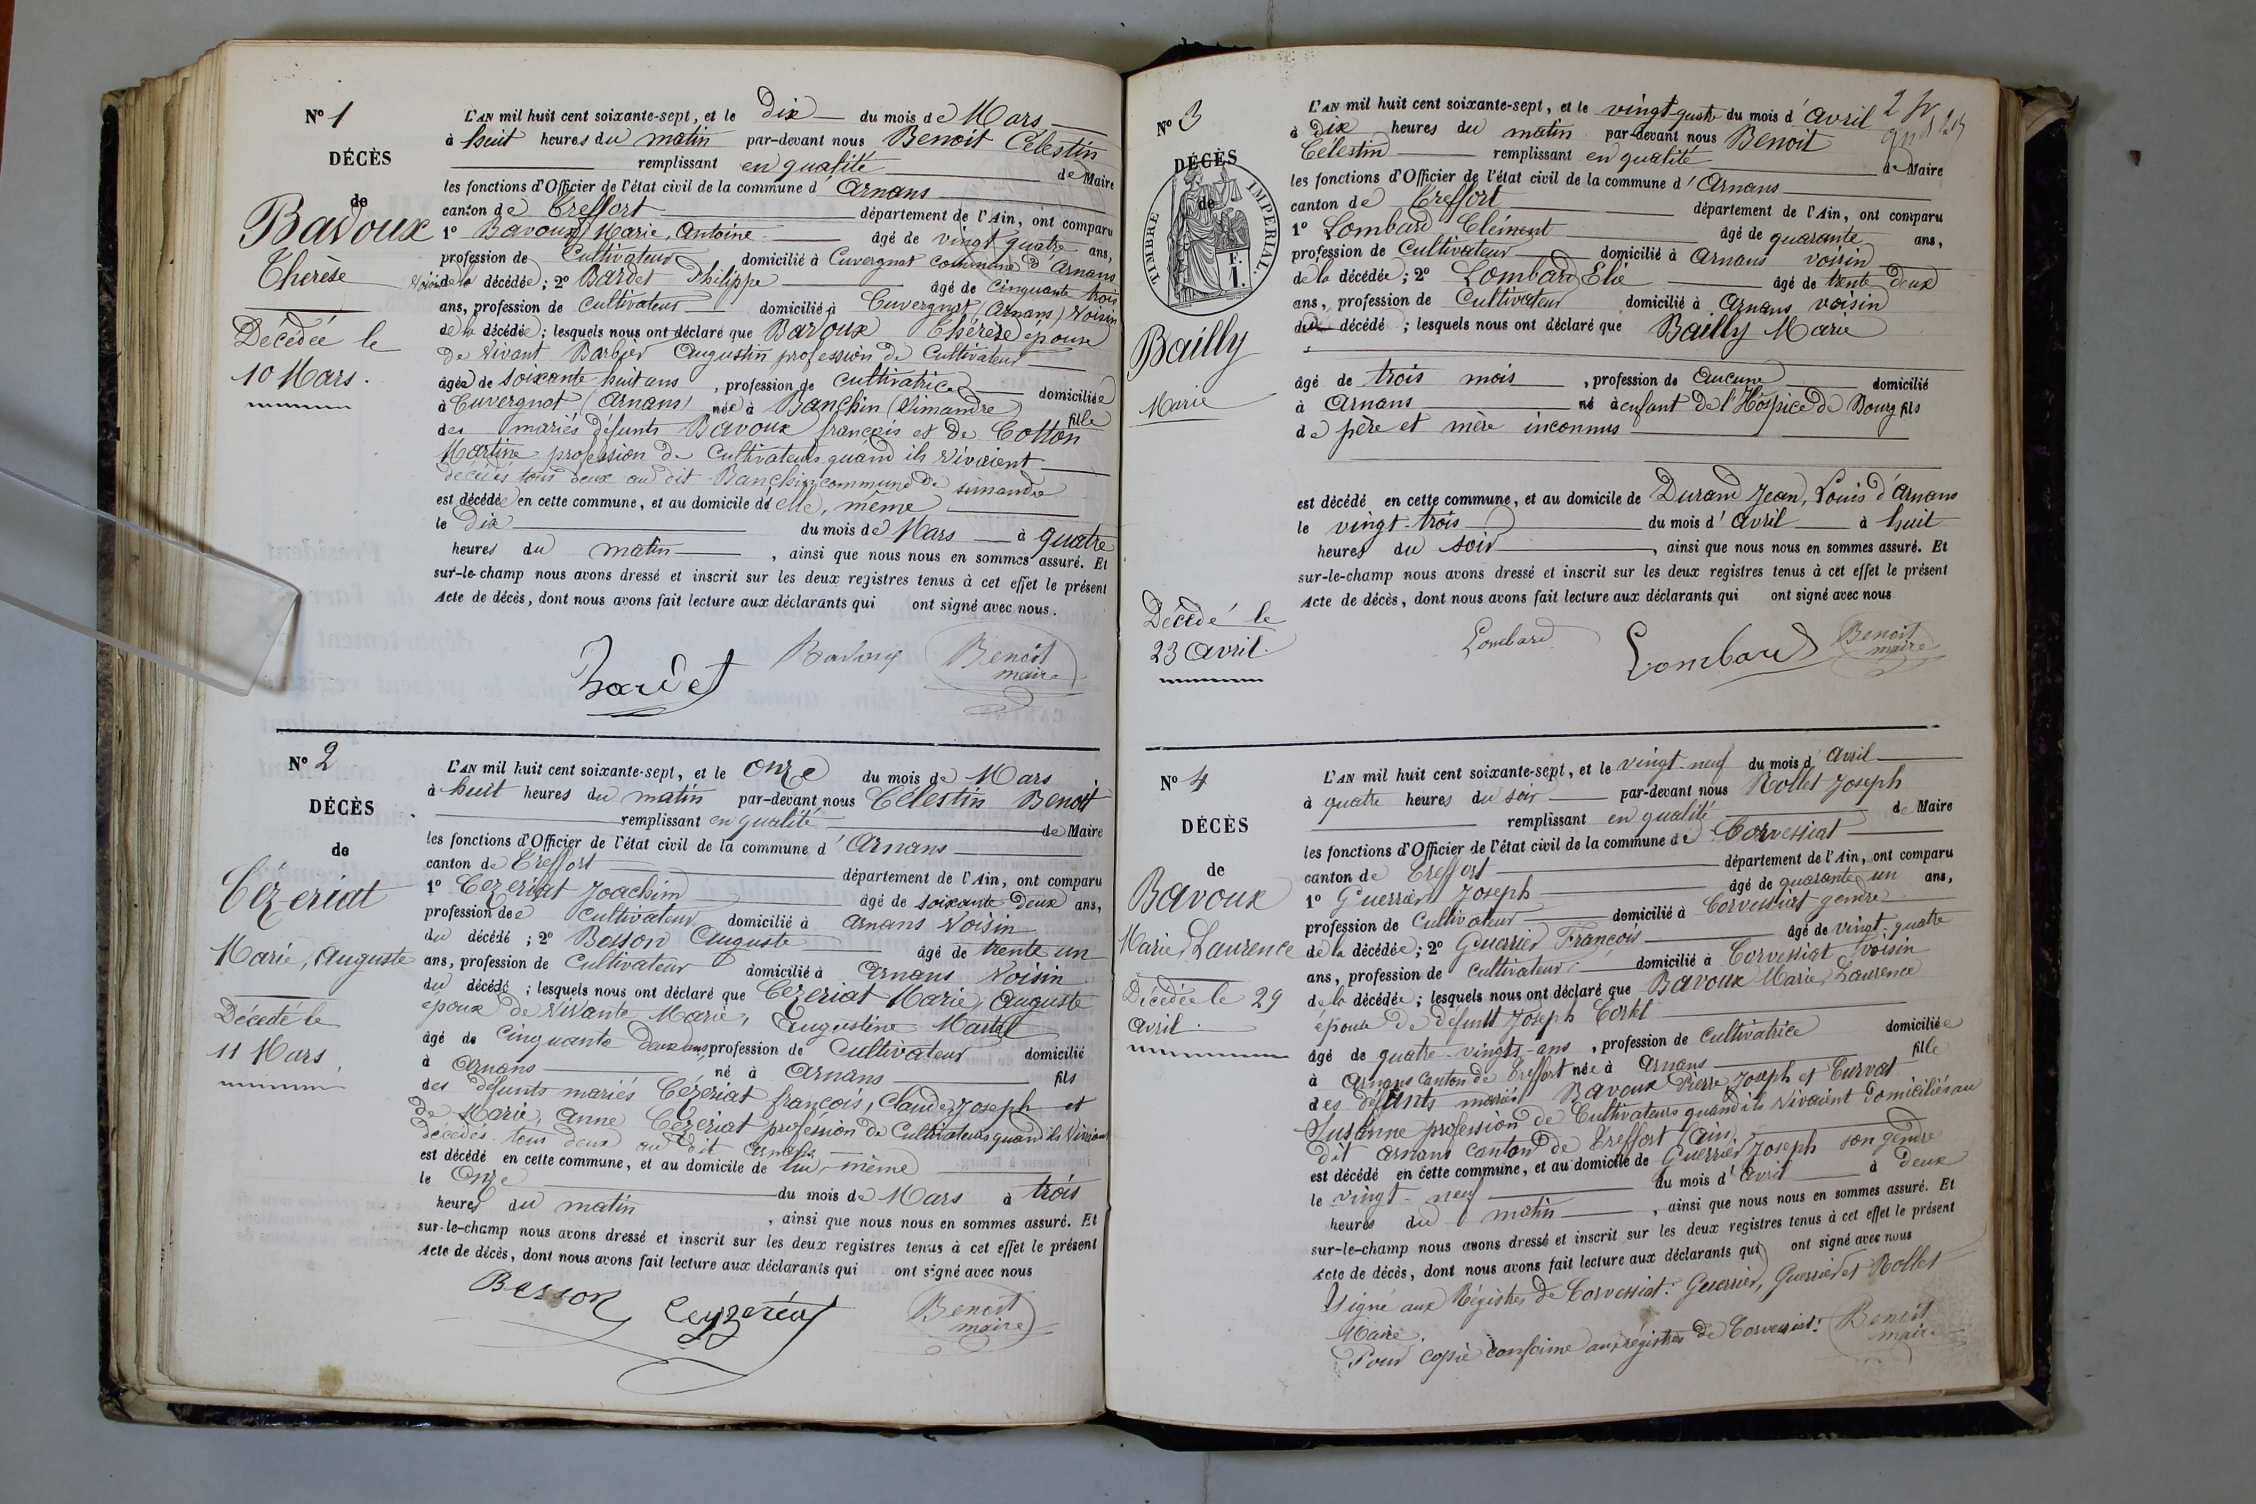 N° 1
DÉCÈS
de
Bavoux
Thérèse
Décédée le
10 Mars.
L'AN mil huit cent soixante-sept, et le dix du mois de Mars
à huit heures du matin par-devant nous Benoit Célestin
remplissant en qualité de Maire
les fonctions d'Officier de l'état civil de la commune d'Arnans
canton de Treffort département de l'Ain, ont comparu
1° Bavoux Marie, Antoine âgé de vingt quatre ans,
profession de Cultivateur domicilié à Cuvergnat commune d'Arnans
Voisin de la décédée; 2° Bardet Philippe âgé de cinquante trois
ans, profession de cultivateur domicilié à Cuvergnat (Arnans) Voisin
de la décédée; lesquels nous ont déclaré que Bavoux Thérèse épouse
de vivant Barbier Augustin profession de Cultivateur
âgée de soixante huit ans, profession de cultivatrice domiciliée
à Cuvergnat (Arnans) née à Banchin (Simandre) fille
des mariés défunts Bavoux françois et de Cotton
Martine profession de Cultivateurs quand ils vivaient
décédés tous deux au dit Banchin commune de simandre
est décédée en cette commune, et au domicile d'elle, même
le dix du mois de Mars à quatre
heures du matin, ainsi que nous nous en sommes assuré. Et
sur-le-champ nous avons dressé et inscrit sur les deux registres tenus à cet effet le présent
Acte de décès, dont nous avons fait lecture aux déclarants qui ont signé avec nous.
Bardet Bavoux Benoit
maire
N° 2
DÉCÈS
de
Cézeriat
Marie, Auguste
Décédé le
11 Mars.
L'AN mil huit cent soixante-sept, et le onze du mois de Mars
à huit heures du matin par-devant nous Célestin Benoit
remplissant en qualité de Maire
les fonctions d'Officier de l'état civil de la commune d'Arnans
canton de Treffort département de l'Ain, ont comparu
1° Cézeriat Joachim âgé de soixante deux ans,
profession de cultivateur domicilié à Arnans Voisin
du décédé; 2° Bosson Auguste âgé de trente un
ans, profession de Cultivateur domicilié à Arnans Voisin
du décédé; lesquels nous ont déclaré que Cézeriat Marie, Auguste
époux de Vivante Marie, Augustine Martel
âgé de cinquante deux ans, profession de Cultivateur domicilié
à Arnans né à Arnans fils
des défunts mariés Cézeriat françois, Claude, Joseph et
de Marie, Anne Cézeriat profession de Cultivateurs quand ils vivaient
décédés tous deux au dit Arnans
est décédé en cette commune, et au domicile de lui-même
le onze du mois de Mars à trois
heures du matin, ainsi que nous nous en sommes assuré. Et
sur-le-champ nous avons dressé et inscrit sur les deux registres tenus à cet effet le présent
Acte de décès, dont nous avons fait lecture aux déclarants qui ont signé avec nous
Benoit
maire
N° 3
DÉCÈS
de
TIMBRE IMPERIAL.
F.
1.
Bailly
Marie
Décédé le
23 Avril.
L'AN mil huit cent soixante-sept, et le vingt quatre du mois d'avril
à dix heures du matin par-devant nous Benoit
Célestin remplissant en qualité de Maire
les fonctions d'Officier de l'état civil de la commune d'Arnans
canton de Treffort département de l'Ain, ont comparu
1° Lombard Clément âgé de quarante ans,
profession de Cultivateur domicilié à Arnans voisin
de la décédée; 2° Lombard Elie âgé de trente deux
ans, profession de Cultivateur domicilié à Arnans voisin
du décédé; lesquels nous ont déclaré que Bailly Marie
âgé de trois mois, profession de Aucune domicilié
à Arnans né à enfant de l'Hospice de Bourg fils
de père et mère inconnus
est décédé en cette commune, et au domicile de Durand Jean, Louis d'Arnans
le vingt-trois du mois d'avril à huit
heures du soir, ainsi que nous nous en sommes assuré. Et
sur-le-champ nous avons dressé et inscrit sur les deux registres tenus à cet effet le présent
Acte de décès, dont nous avons fait lecture aux déclarants qui ont signé avec nous
Lombard Lombard Benoit
maire
N° 4
DÉCÈS
de
Bavoux
Marie, Laurence
Décédée le 29
avril.
L'AN mil huit cent soixante-sept, et le vingt-neuf du mois d'Avril
à quatre heures du soir par-devant nous Rollet Joseph
remplissant en qualité de Maire
les fonctions d'Officier de l'état civil de la commune de Corvessiat
canton de Treffort département de l'Ain, ont comparu
1° Guerrier Joseph âgé de quarante un ans,
profession de Cultivateur domicilié à Corvessiat gendre
de la décédée; 2° Guerrier François âgé de vingt-quatre
ans, profession de cultivateur domicilié à Corvessiat voisin
de la décédée; lesquels nous ont déclaré que Bavoux Marie, Laurence
épouse de défunt Joseph
âgé de quatre-vingts-ans, profession de cultivatrice domiciliée
à Arnans canton de Treffort née à Arnans fille
des défunts mariés Bavoux Pierre, Joseph et Curvat
Susanne profession de Cultivateurs quand ils vivaient domiciliés au
dit Arnans canton de Treffort (Ain).
est décédé en cette commune, et au domicile de Guerrier Joseph son gendre
le vingt-neuf du mois d'avril à deux
heures du matin, ainsi que nous nous en sommes assuré. Et
sur-le-champ nous avons dressé et inscrit sur les deux registres tenus à cet effet le présent
Acte de décès, dont nous avons fait lecture aux déclarants qui ont signé avec nous
signé aux Régistres de Corvessiat: Guerrier, Guerrier et Rollet
Maire.
Pour copie conforme aux registres de Corvessiat: Benoit
maire